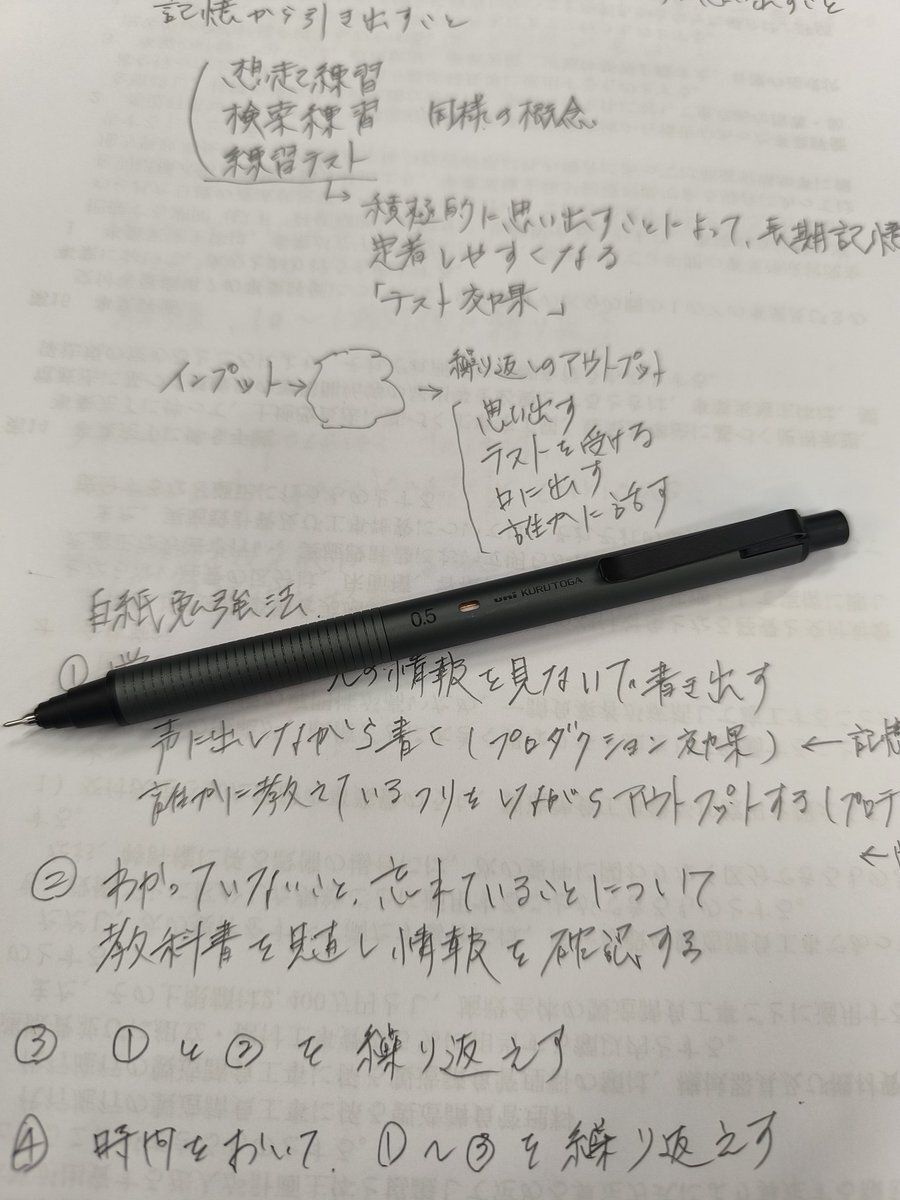 記憶から引き出すこと
想起練習
検索練習 同様の概念
練習テスト
↳ 積極的に思い出すことによって、長期記憶
定着しやすくなる
「テスト効果」
インプット→ → 繰り返しのアウトプット
思い出す
テストを受ける
口に出す
誰かに話す
0.5 uni KURUTOGA
白紙勉強法
① の情報を見ないで書き出す
声に出しながら書く(プロダクション効果)←記憶
誰かに教えているつりをしながらアウトプットする(プロテ
② わかっていないこと、忘れていることについて
教科書を見直し情報を確認する
③ ①と②を繰り返えす
④ 時間をおいて、①〜③を繰り返えす